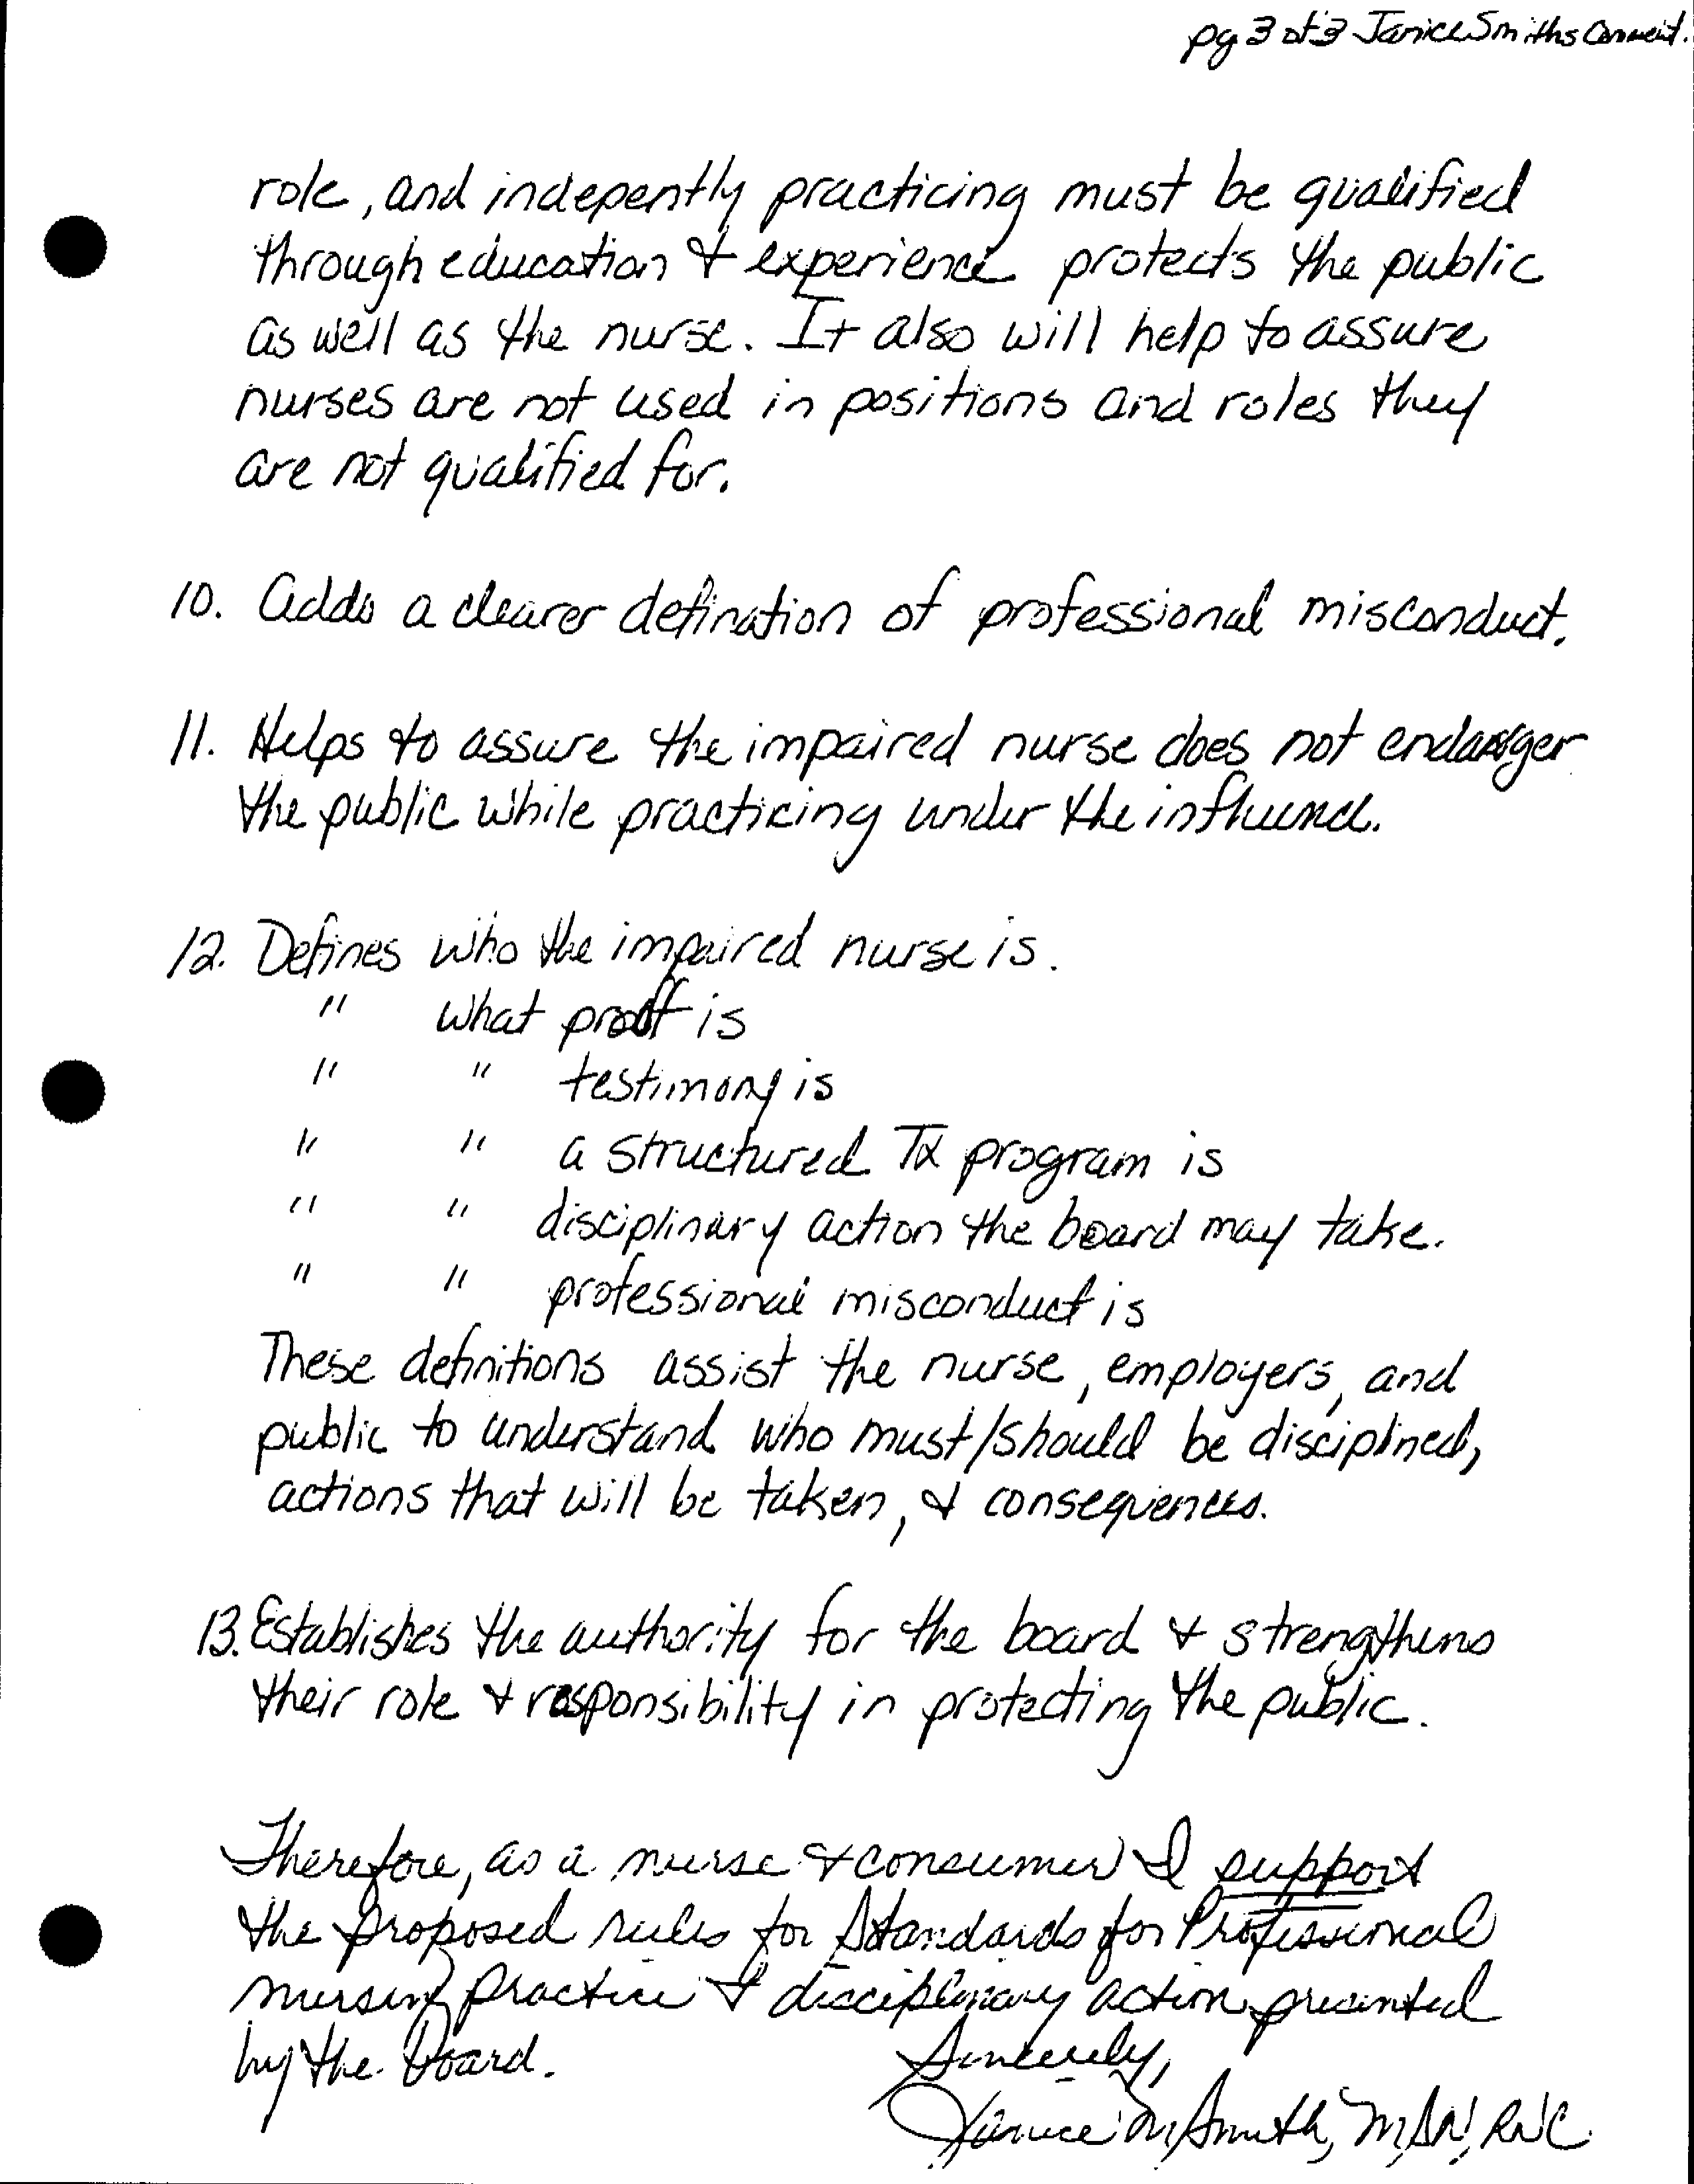 pg 3 of 3 Janice Smiths Comment.
role, and indepently practicing must be qualified
through education & experience protects the public
as well as the nurse. It also will help to assure
nurses are not used in positions and roles they
are not qualified for.
10. Adds a clearer defination of professional misconduct.
11. Helps to assure the impaired nurse does not endanger
the public while practicing under the influence.
12. Defines who the impaired nurse is.
" what proof is
" " testimony is
" " a structured Tx program is
" " disciplinary action the board may take.
" " professional misconduct is
These definitions assist the nurse, employers, and
public to understand who must/should be disciplined,
actions that will be taken, & consequences.
13. Establishes the authority for the board & strengthens
their role & responsibility in protecting the public.
Therefore, as a nurse & consumer I support
the proposed rules for Standards for Professional
nursing practice & disciplinary action presented
by the Board.
Sincerely,
Janice M. Smith, MSN, RNC